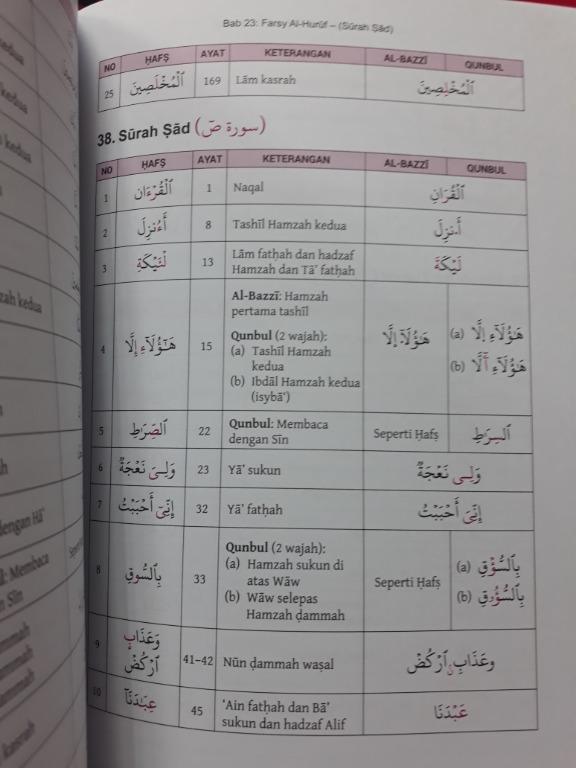 Bab 23: Farsy Al-Ḥurūf – (Sūrah Ṣād)
NO ḤAFṢ AYAT KETERANGAN AL-BAZZĪ QUNBUL
25 ٱلْمُخْلَصِينَ 169 Lām kasrah ٱلْمُخْلِصِينَ
38. Sūrah Ṣād (سورة صٓ)
NO ḤAFṢ AYAT KETERANGAN AL-BAZZĪ QUNBUL
1 ٱلْقُرْءَانِ 1 Naqal ٱلْقُرَانِ
2 أَءُنزِلَ 8 Tashīl Hamzah kedua أَ۟نزِلَ
3 لْـَٔيْكَةِ 13 Lām fatḥah dan hadzaf
Hamzah dan Tā’ fatḥah
لَيْكَةَ
4 هَـٰٓؤُلَآءِ إِلَّا 15
Al-Bazzī: Hamzah
pertama tashīl
Qunbul (2 wajah):
(a) Tashīl Hamzah
kedua
(b) Ibdāl Hamzah kedua
(isybā‘)
(a)
(b)
5 ٱلصِّرَٰطِ 22 Qunbul: Membaca
dengan Sīn
Seperti Ḥafṣ ٱلسِّرَٰطِ
6 وَلِىَ نَعْجَةٌ 23 Yā’ sukun وَلِى نَعْجَةٌ
7 إِنِّىٓ أَحْبَبْتُ 32 Yā’ fatḥah إِنِّىَ أَحْبَبْتُ
8 بِٱلسُّوقِ 33
Qunbul (2 wajah):
(a) Hamzah sukun di
atas Wāw
(b) Wāw selepas
Hamzah ḍammah
Seperti Ḥafṣ
(a) بِٱلسُّؤْقِ
(b) بِٱلسُّؤُوقِ
9 وَعَذَابٍ
ٱرْكُضْ
41–42 Nūn ḍammah waṣal وَعَذَابٍ ٱرْكُضْ
10 عِبَـٰدَنَآ 45 ‘Ain fatḥah dan Bā’
sukun dan hadzaf Alif
عَبْدَنَا